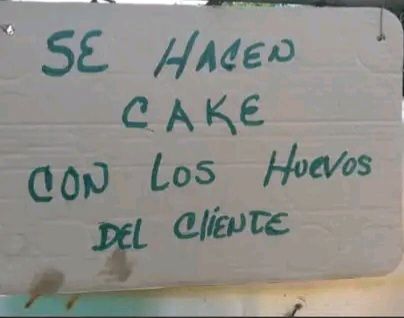 SE HACEN
CAKE
CON LOS HUEVOS
DEL CLIENTE